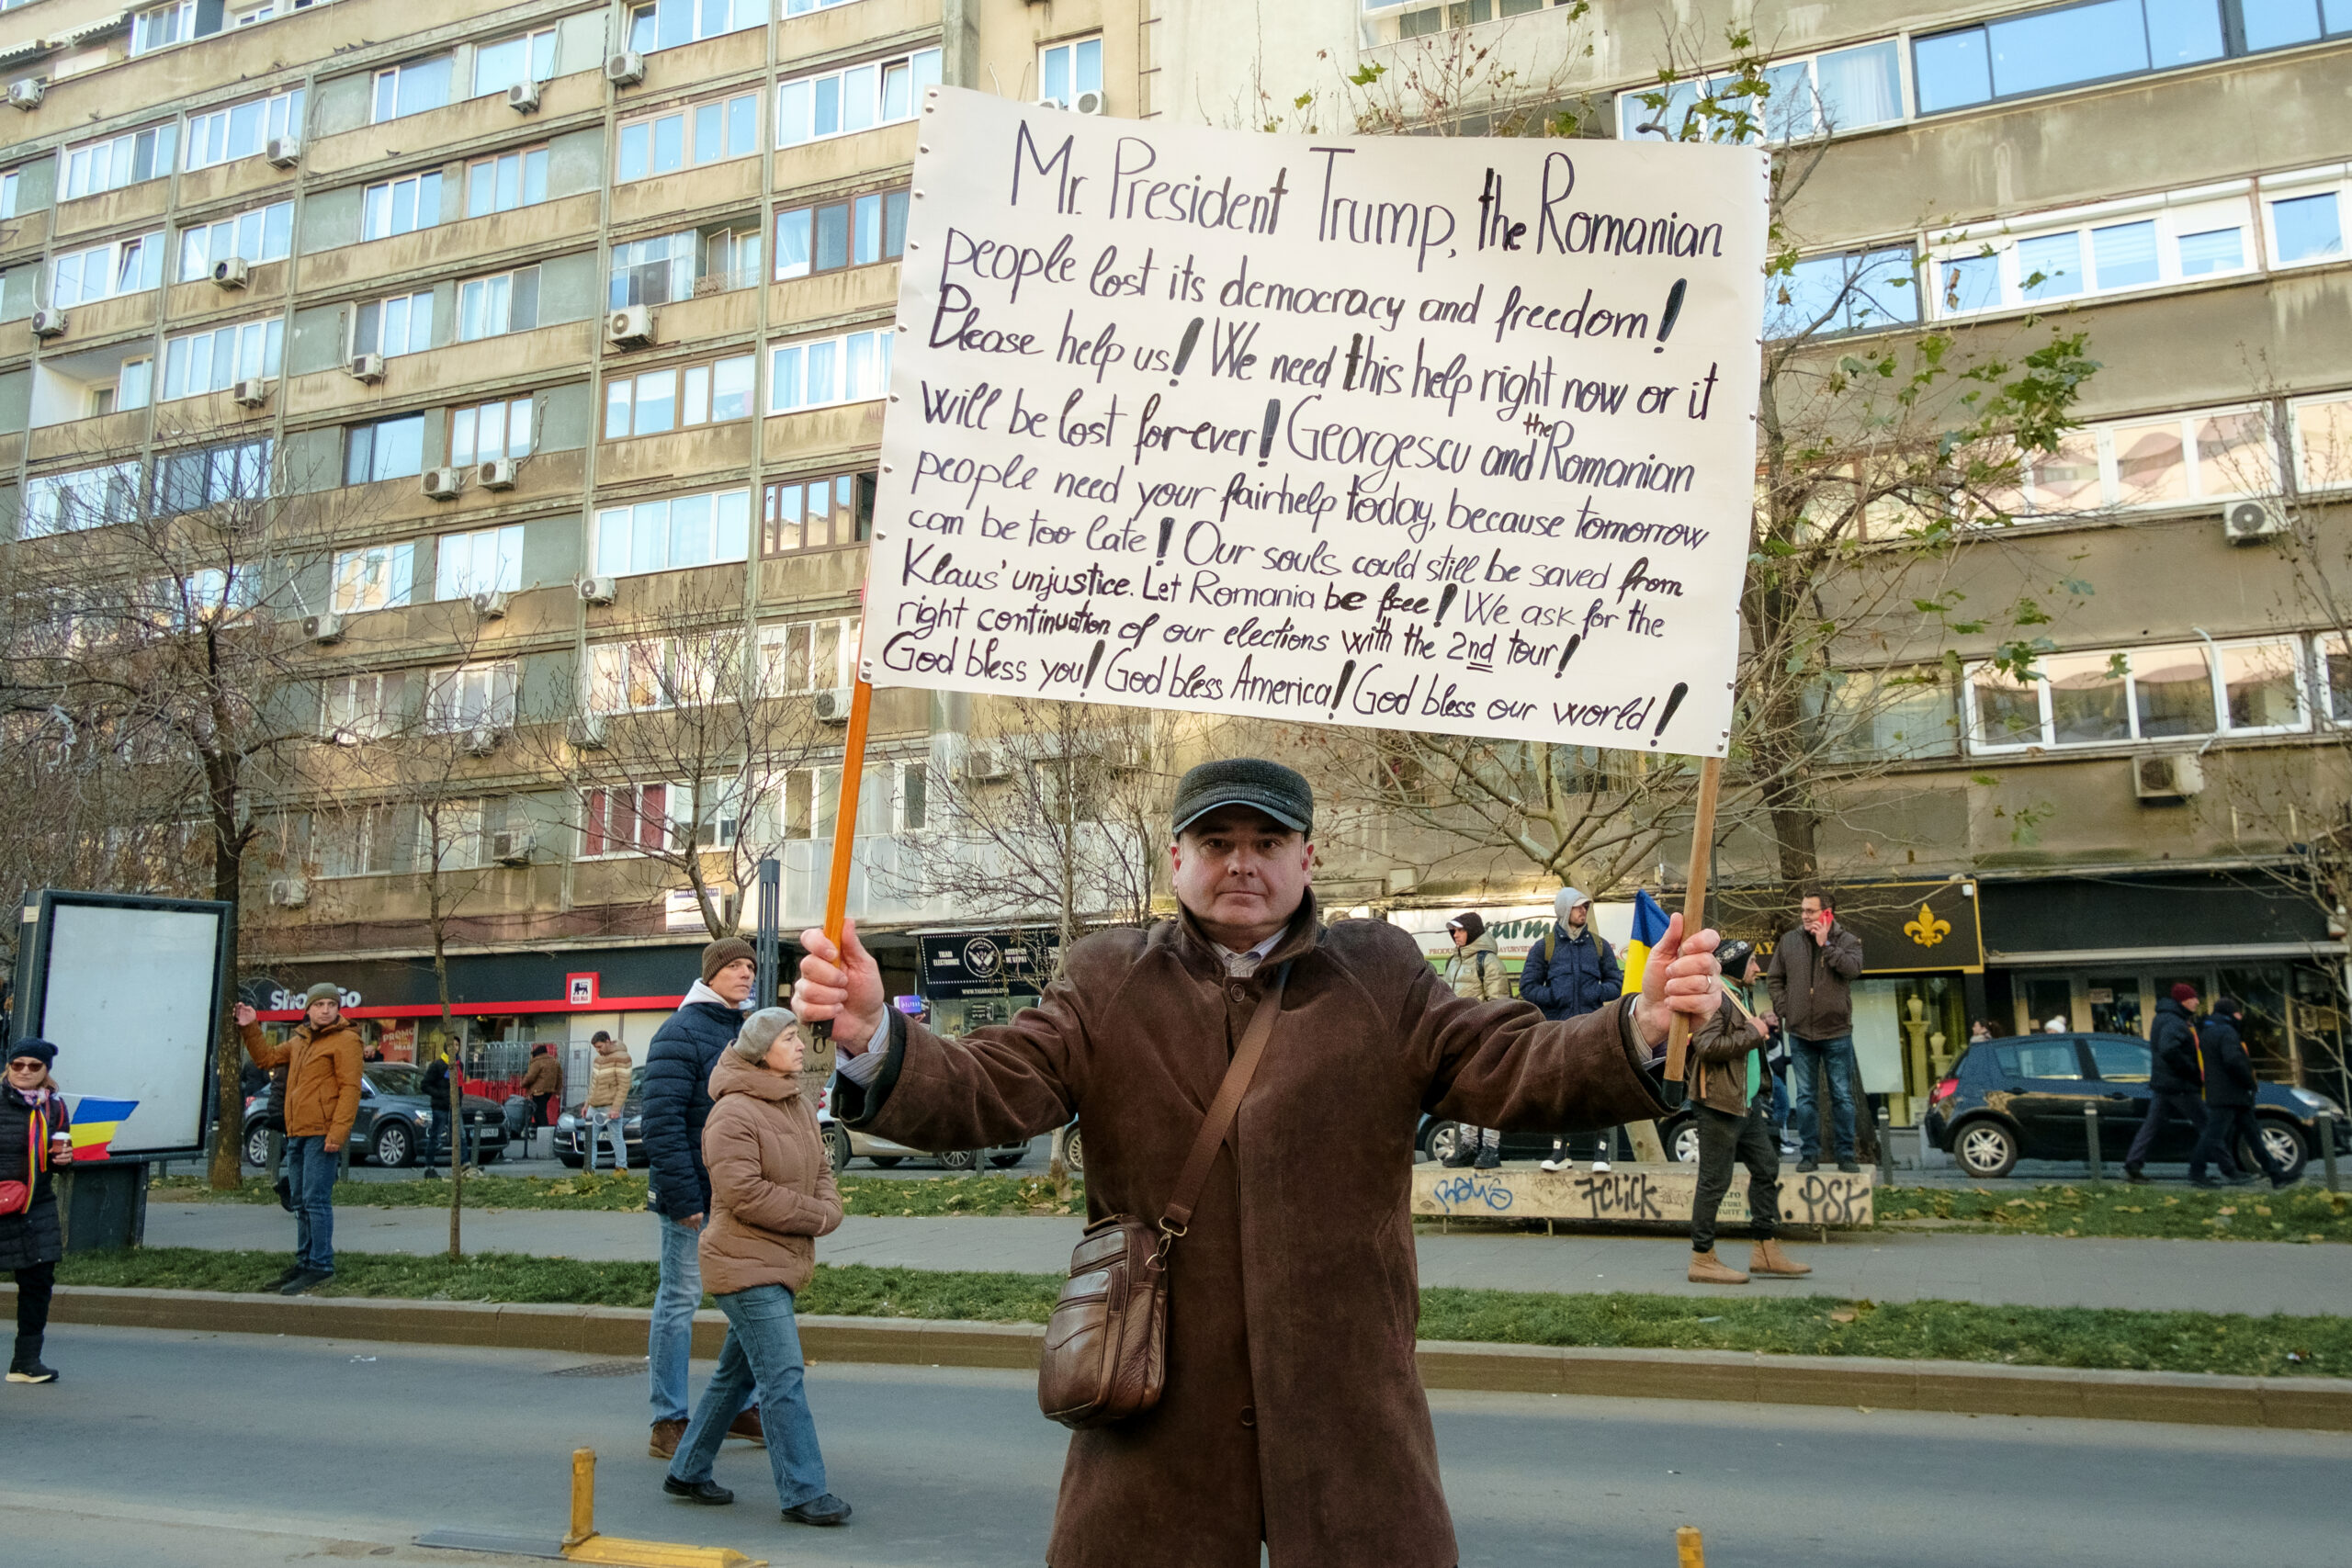 Mr. President Trump, the Romanian
people lost its democracy and freedom!
Please help us! We need this help right now or it
will be lost for-ever! Georgescu and the Romanian
people need your fairhelp today, because tomorrow
can be too late! Our souls could still be saved from
Klaus' unjustice. Let Romania be free! We ask for the
right continuation of our elections with the 2nd tour!
God bless you! God bless America! God bless our world!
Shop Go
7CLICK
PSK